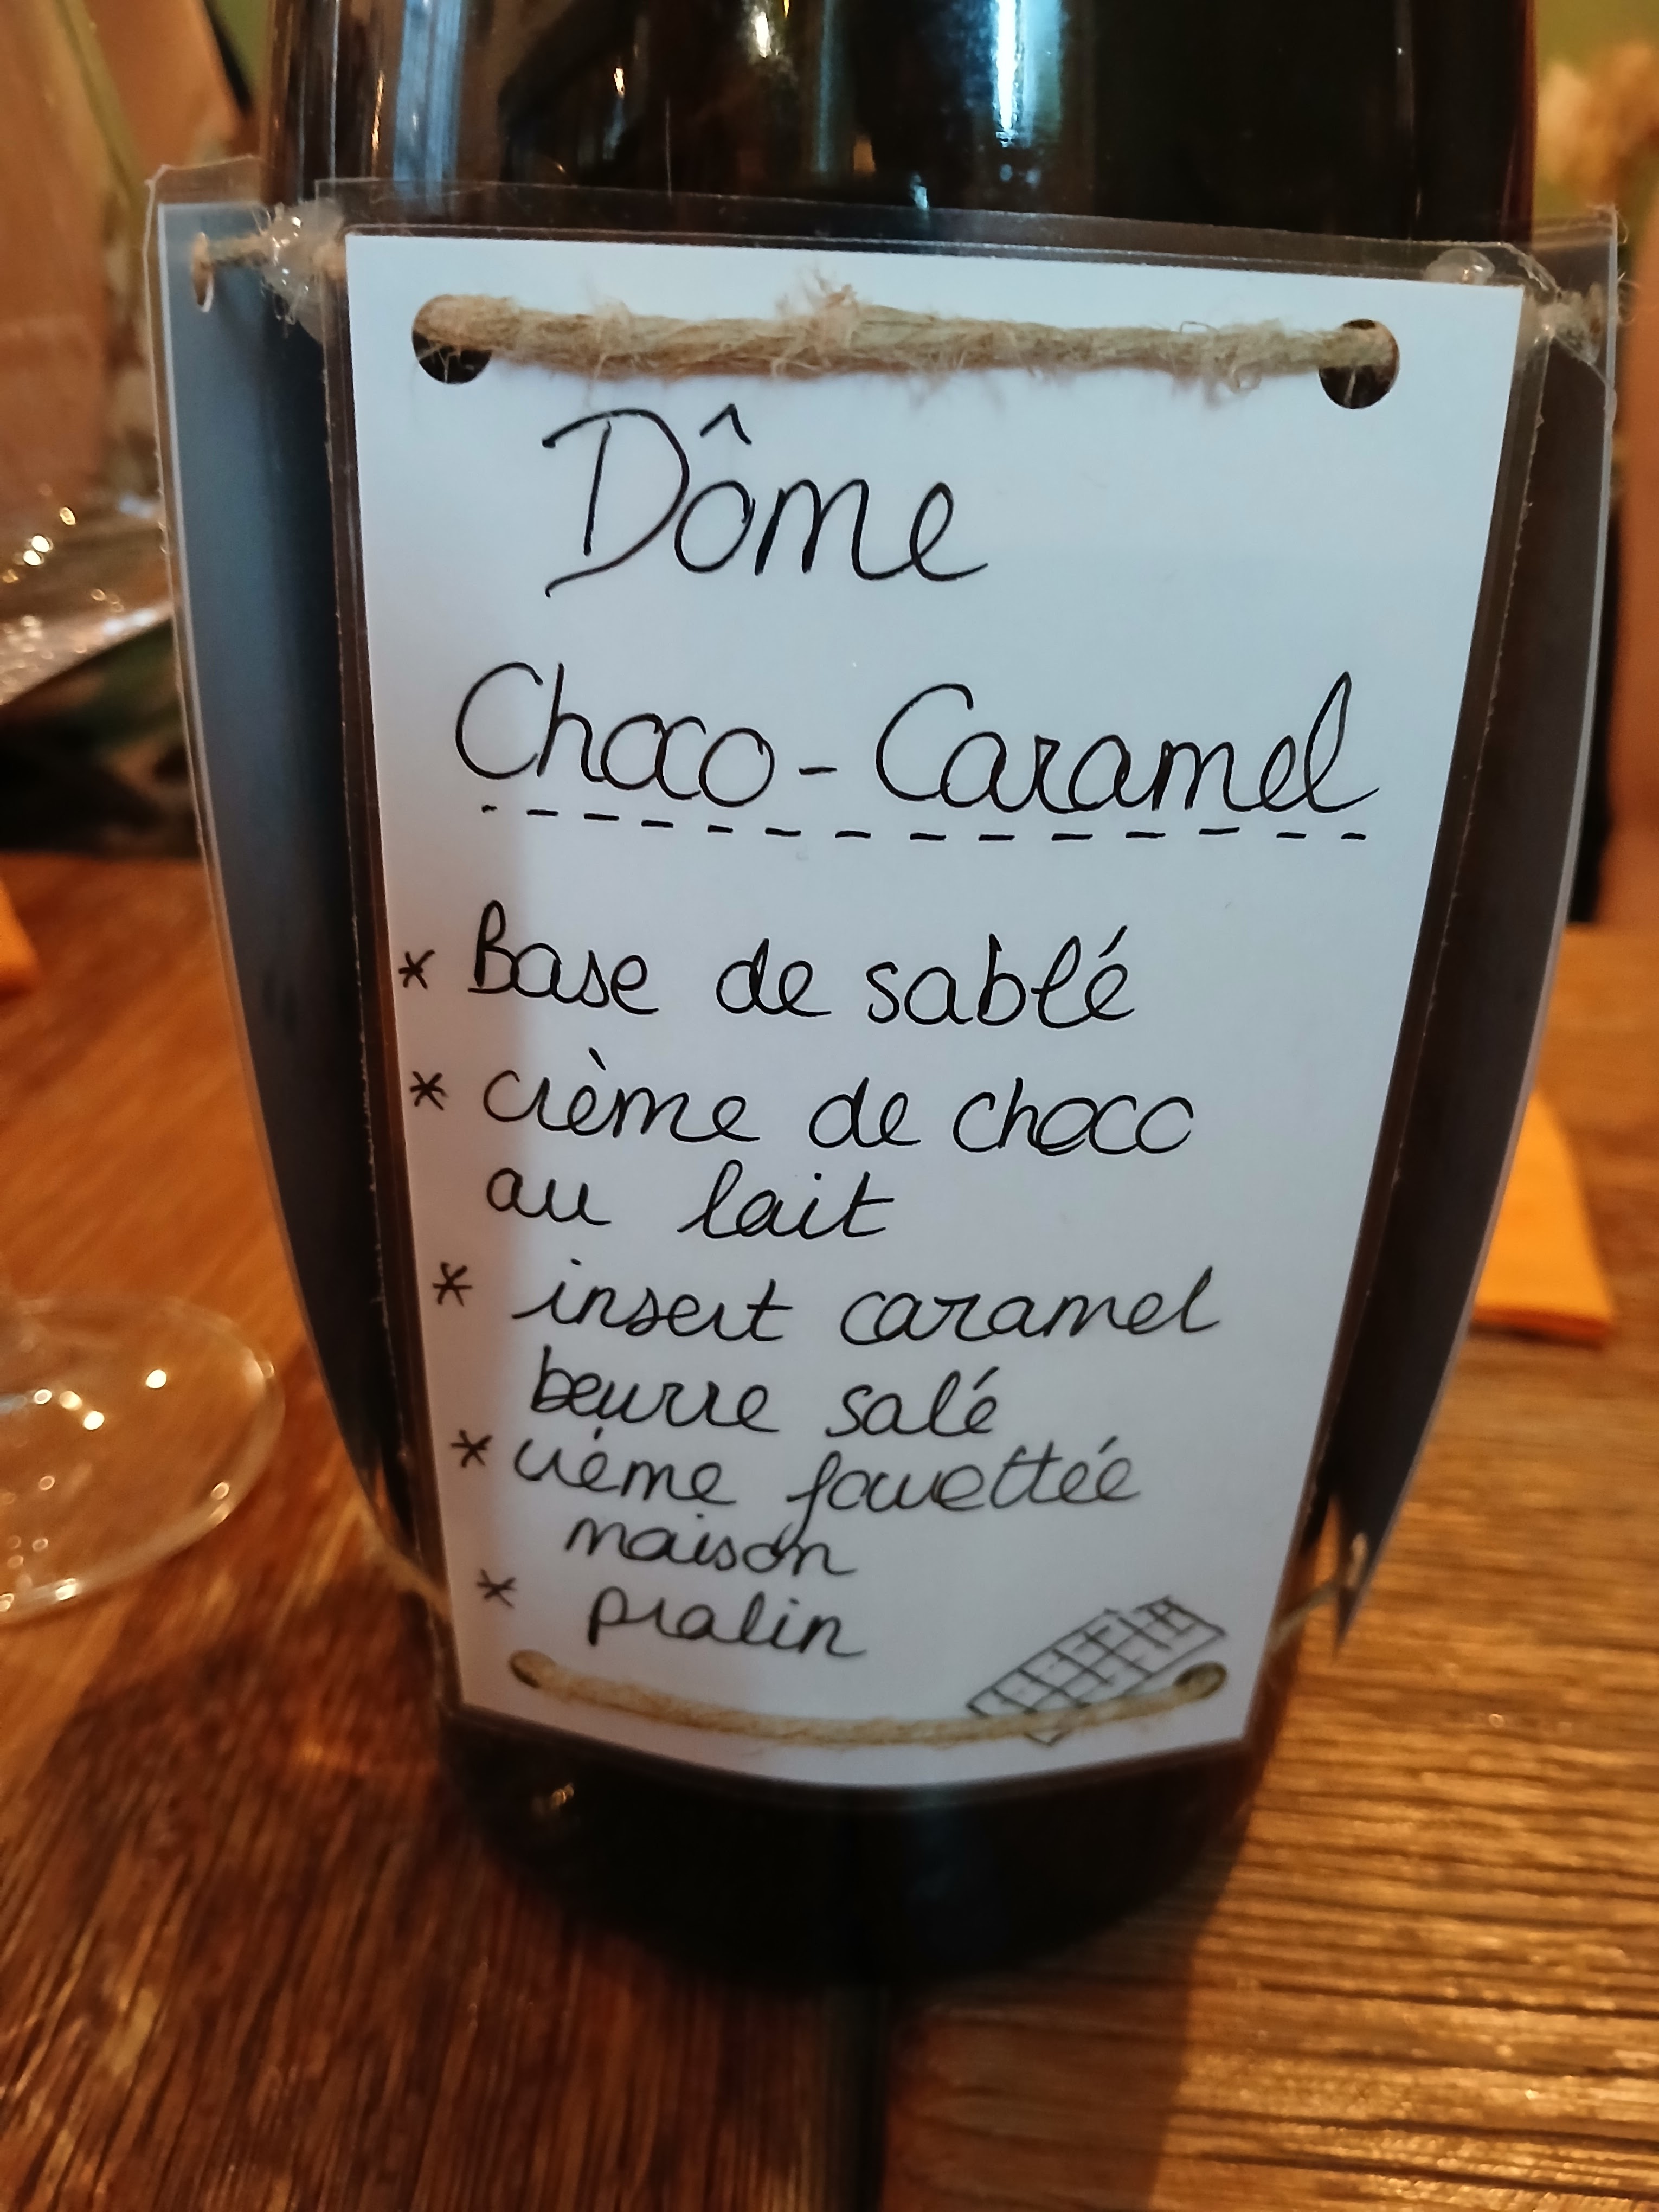 Dôme
Choco-Caramel
* Base de sablé
* crème de choco
au lait
* insert caramel
beurre salé
* crème fouettée
maison
* pralin